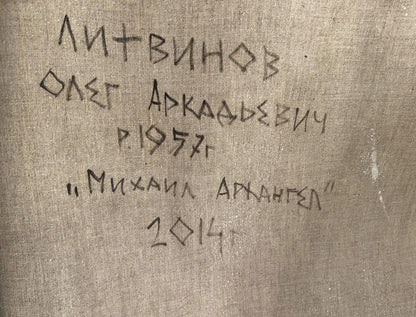 ЛИТВИНОВ
ОЛЕГ АРКАДЬЕВИЧ
Р. 1957г
„МИХАИЛ АРХАНГЕЛ"
2014г